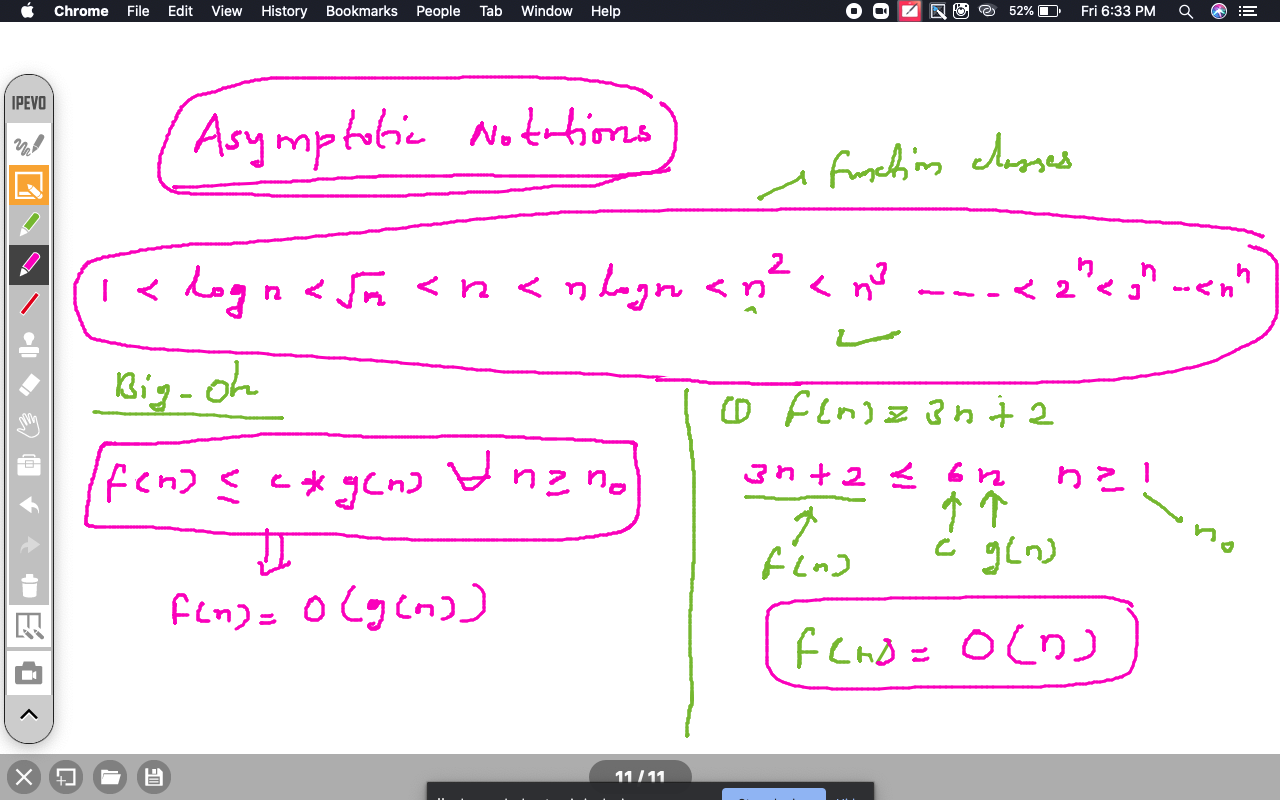 Chrome File Edit View History Bookmarks People Tab Window Help 52% Fri 6:33 PM
IPEVO
Asymptotic Notations
function classes
1 < log n < √n < n < n log n < n² < n³ ---- < 2ⁿ < 3ⁿ -- < nⁿ
Big-Oh
f(n) ≤ c * g(n) ∀ n ≥ n₀
f(n) = O(g(n))
① f(n) = 3n + 2
3n + 2 ≤ 6n n ≥ 1
f(n) c g(n) n₀
f(n) = O(n)
11 / 11